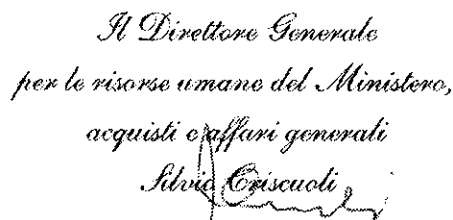 Il Direttore Generale
per le risorse umane del Ministero,
acquisti e affari generali
Silvio Criscuoli